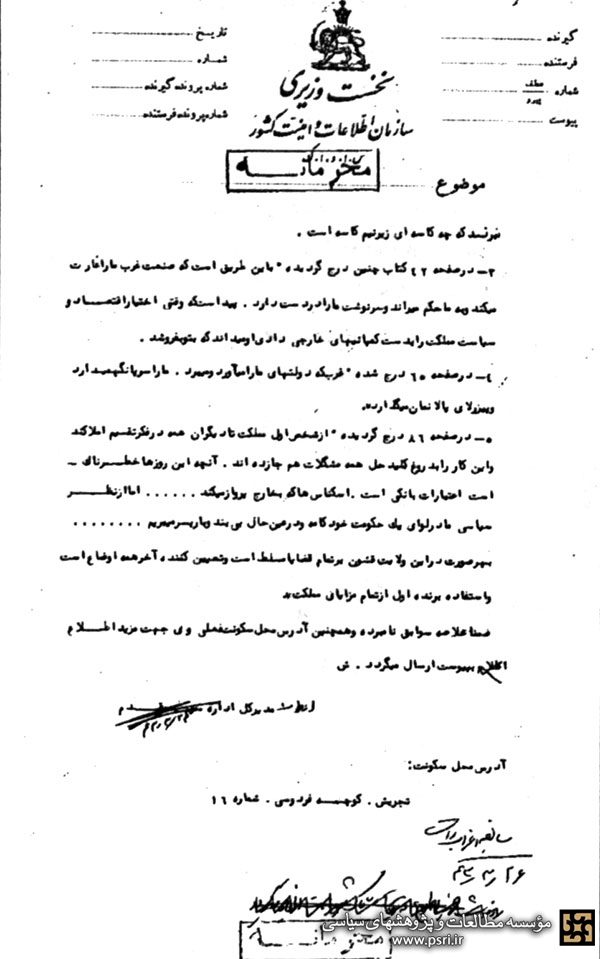 گیرنده
فرستنده
شماره
پیوست
تاریخ
شماره
شماره پرونده گیرنده
شماره پرونده فرستنده
نخست وزیری
سازمان اطلاعات و امنیت کشور
محرمانه
موضوع
نپرسند که چه کاسه ای زیر نیم کاسه است .
۳- در صفحه ۴۲ کتاب چنین درج گردیده " باین طریق است که صنعت غرب ما را غارت
میکند و به ما حکم میراند و سرنوشت ما را در دست دارد . پیداست که وقتی اختیار اقتصاد و
سیاست مملکت را بدست کمپانیهای خارجی دادی او میداند که بتو بفروشد .
٤- در صفحه ٦٥ درج شده " غرب که دولتهای ما را میآورد و میبرد . ما را سرپا نگهمیدارد
و بیزرلای بالا نمان میگذارد ".
٥- در صفحه ٨٦ درج گردیده " از شخص اول مملکت تا دیگران همه در فکر تقسیم املاکند
و این کار را بدروغ کلید حل همه مشکلات هم جا زده اند . آنچه این روزها خطرناک -
است اعتبارات بانکی است . اسکناس ها که بخارج پرواز میکند . . . . . . اما از نظر
سیاسی ما در لوای یك حکومت خودکامه و در عین حال بی بند و بار بسر میبریم . . . . . . . .
بهر صورت در این ولایت قشون بر تمام قضایا مسلط است و تعیین کننده آخر همه اوضاع است
و استفاده برنده اول از تمام مزایای مملکت ".
ضمنا خلاصه سوابق نامبرده و همچنین آدرس محل سکونت فعلی وی جهت مزید اطلاع
بپیوست ارسال میگردد . ش
مدیر کل اداره
آدرس محل سکونت :
تجریش . کوچه فردوسی . شماره ١٦
محرمانه
مؤسسه مطالعات و پژوهشهای سیاسی
www.psri.ir